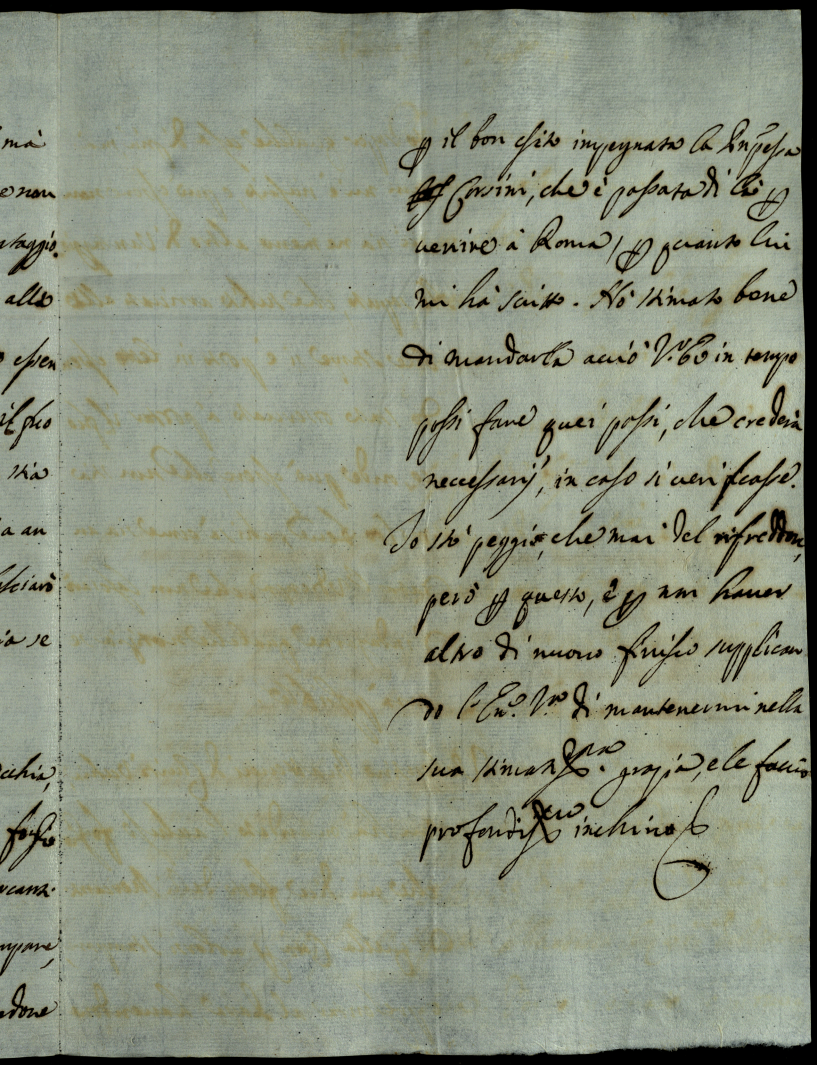 mà
e non
ntaggio.
alle
essen
stia
a an
lasciarò
ia se
cchia,
forse
ncanz
mpare,
ndone
ꝑ il bon esito impegnata la Prñpessa
Corsini, che è passata di là ꝑ
venire à Roma, ꝑ quanto lui
mi hà scritto. Hò stimato bene
di mandarla acciò V. E. in tempo
possi fare quei passi, che crederà
necessarij, in caso si verificasse.
Io stò peggio, che mai del rifreddore,
però ꝑ questo, è ꝑ non haver
altro di nuovo finisco supplican
do l'Em.ª V.ra di mantenermi nella
sua stimatiss.ma grazia, e le faccio
profondiss.mo inchino